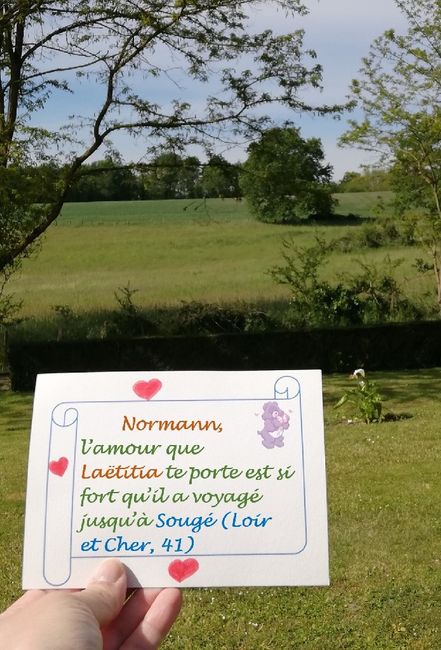 Normann,
l'amour que
Laëtitia te porte est si
fort qu'il a voyagé
jusqu'à Sougé (Loir
et Cher, 41)